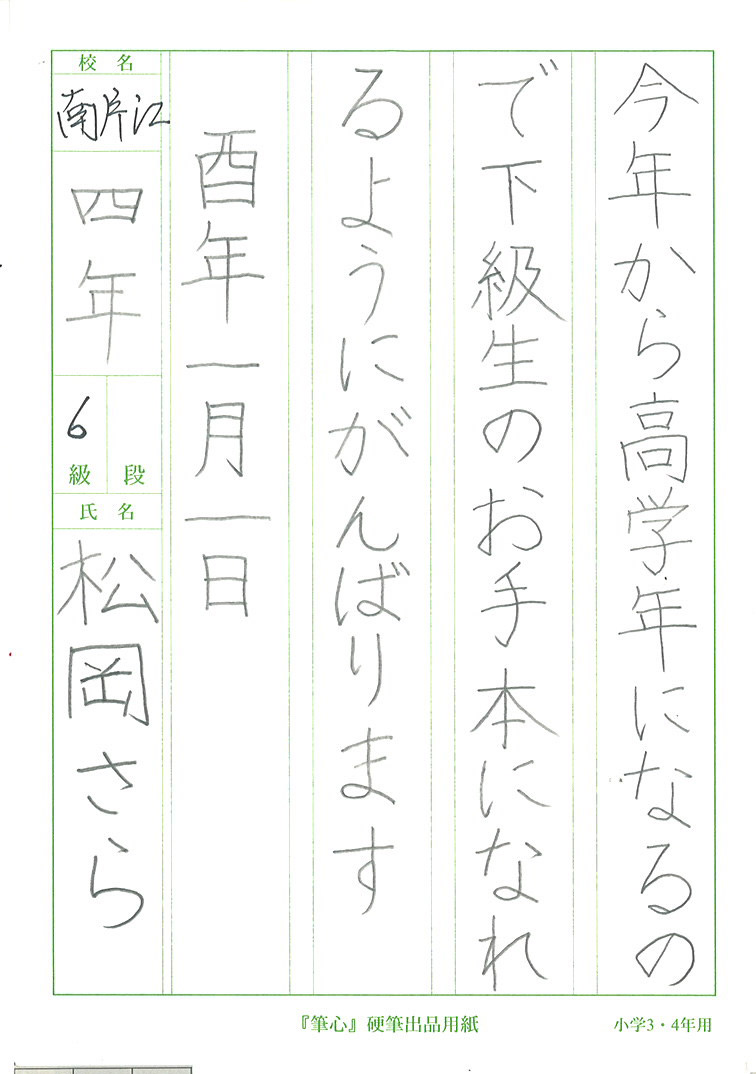 今年から高学年になるの
で下級生のお手本になれ
るようにがんばります
酉年一月一日
校名
南片江
四年
6
級
段
氏名
松岡さら
『筆心』硬筆出品用紙
小学3・4年用